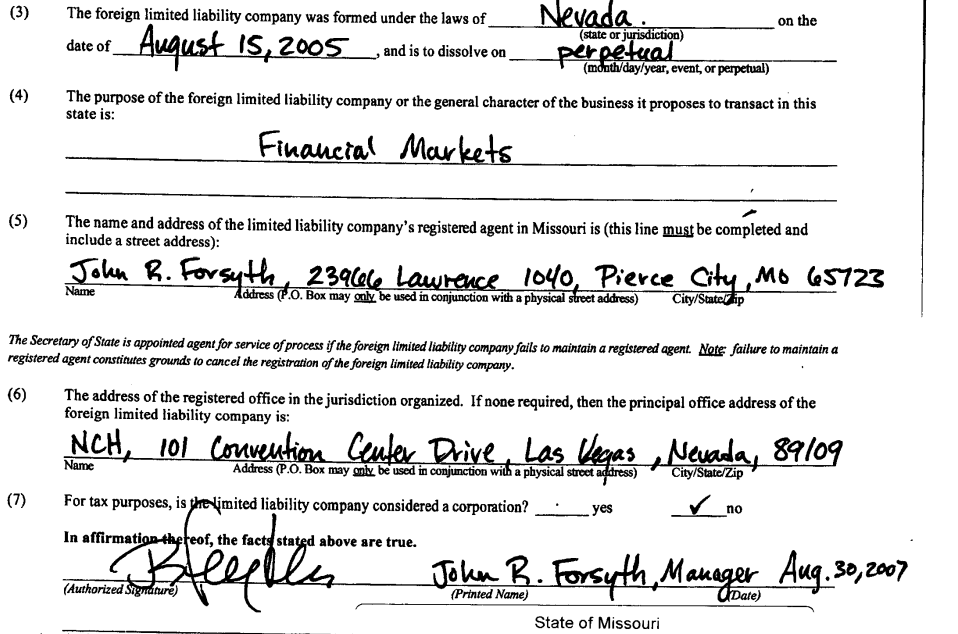 (3) The foreign limited liability company was formed under the laws of Nevada. on the
(state or jurisdiction)
date of August 15, 2005, and is to dissolve on perpetual
(month/day/year, event, or perpetual)
(4) The purpose of the foreign limited liability company or the general character of the business it proposes to transact in this
state is:
Financial Markets
(5) The name and address of the limited liability company's registered agent in Missouri is (this line must be completed and
include a street address):
John R. Forsyth, 23966 Lawrence 1040, Pierce City, Mo 65723
Name Address (P.O. Box may only be used in conjunction with a physical street address) City/State/Zip
The Secretary of State is appointed agent for service of process if the foreign limited liability company fails to maintain a registered agent. Note: failure to maintain a
registered agent constitutes grounds to cancel the registration of the foreign limited liability company.
(6) The address of the registered office in the jurisdiction organized. If none required, then the principal office address of the
foreign limited liability company is:
NCH, 101 Convention Center Drive, Las Vegas, Nevada, 89109
Name Address (P.O. Box may only be used in conjunction with a physical street address) City/State/Zip
(7) For tax purposes, is the limited liability company considered a corporation? yes ✓ no
In affirmation thereof, the facts stated above are true.
John R. Forsyth, Manager Aug. 30, 2007
(Authorized Signature) (Printed Name) (Date)
State of Missouri